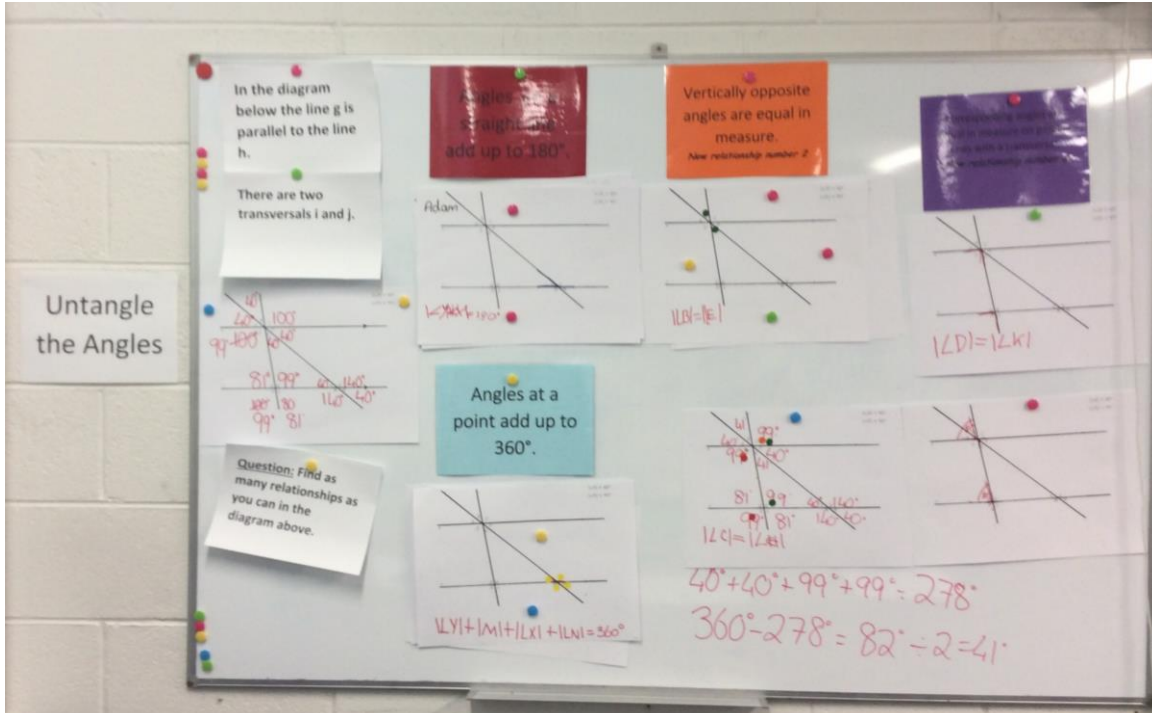 Untangle
the Angles
In the diagram
below the line g is
parallel to the line
h.
There are two
transversals i and j.
40°
40° 100°
99° 100° 40 40
81° 99° 40° 140°
140° 40°
80
99° 81
Question: Find as
many relationships as
you can in the
diagram above.
Angles
straight line
add up to 180°.
Adam
Angles at a
point add up to
360°.
|∠Y|+|M|+|∠X|+|∠N|=360°
Vertically opposite
angles are equal in
measure.
New relationship number 2
|∠B|=|E|
41 99°
40°
99° 41 40°
81° 99° 40° 140°
99° 81° 140° 40°
|∠C|=
40°+40°+99°+99°=278°
360°-278°=82°÷2=41°
|∠D|=|∠K|